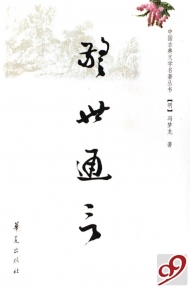 中国古典文学名著丛书
【明】冯梦龙 著
警世通言
华夏出版社
99